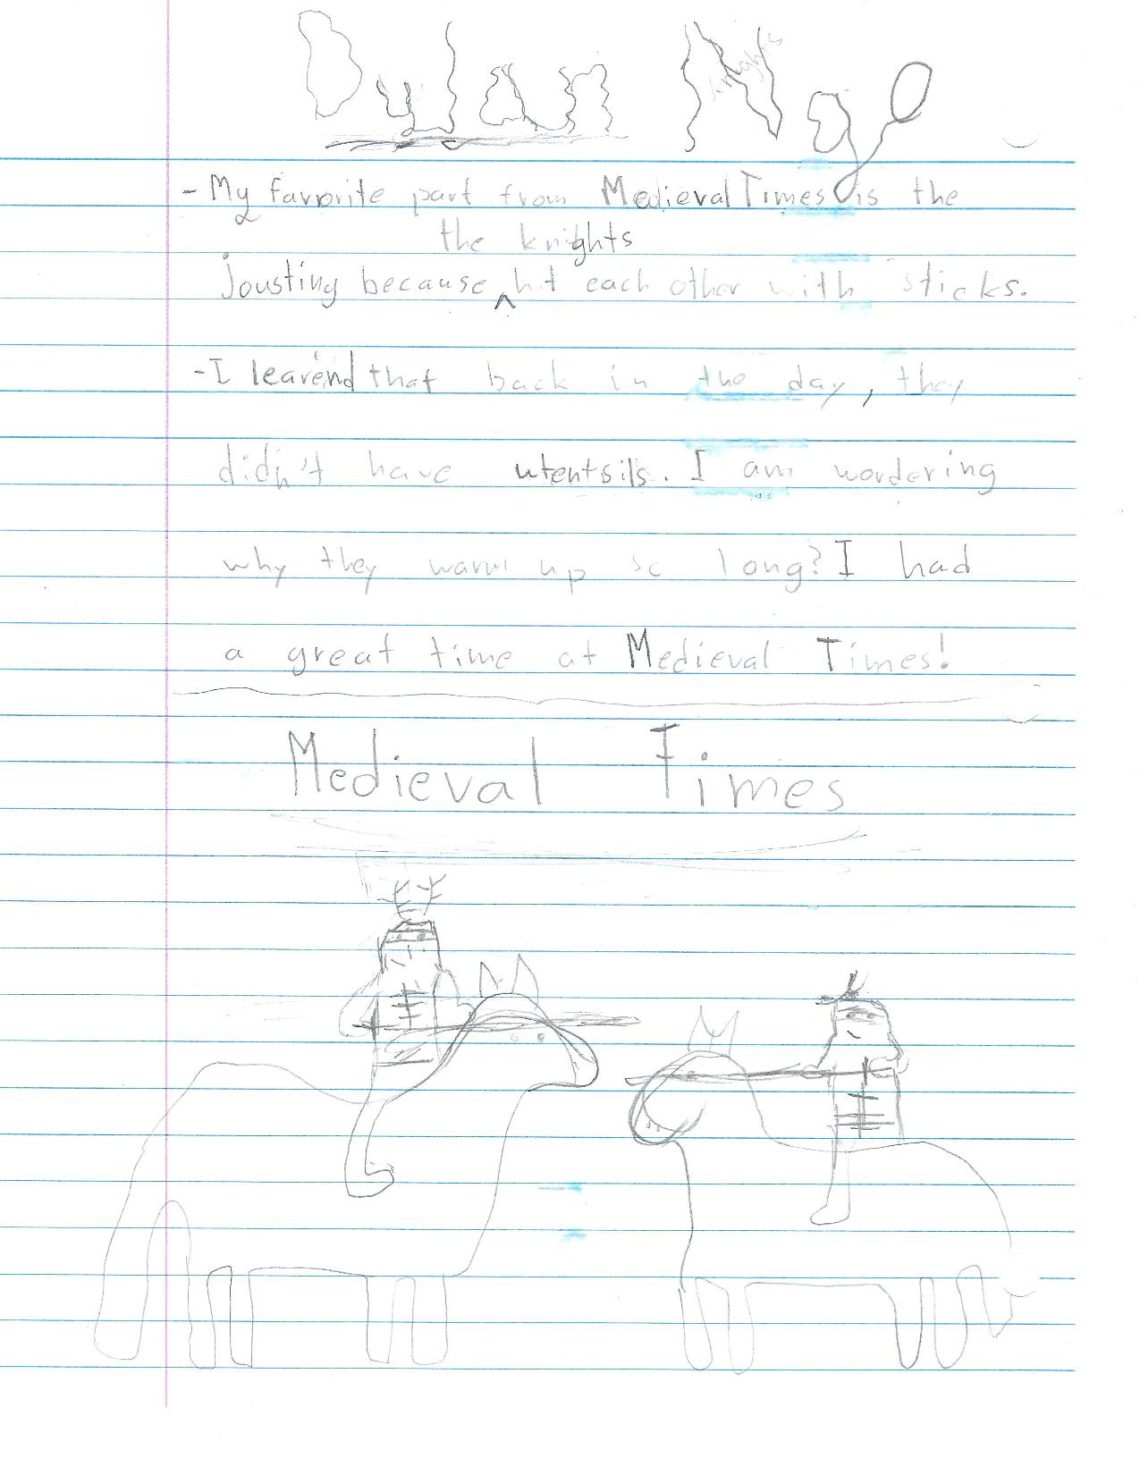 Dylan Ngo
- My favorite part from Medieval Times is the
the knights
jousting because ^ hit each other with sticks.
- I learend that back in the day, they
didn't have utentsils. I am wordering
why they warm up so long? I had
a great time at Medieval Times!
Medieval Times